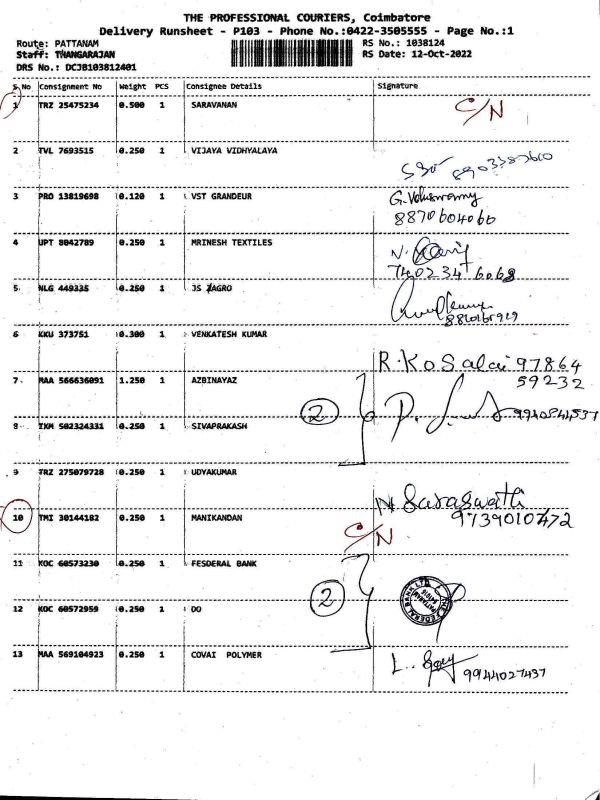 THE PROFESSIONAL COURIERS, Coimbatore
Delivery Runsheet - P103 - Phone No.:0422-3505555 - Page No.:1
Route: PATTANAM RS No.: 1038124
Staff: THANGARAJAN RS Date: 12-Oct-2022
DRS No.: DCJB103812401
S No Consignment No Weight PCS Consignee Details Signature
1 TRZ 25475234 0.500 1 SARAVANAN C/N
2 TVL 7693515 0.250 1 VIJAYA VIDHYALAYA
3 PRO 13819698 0.120 1 VST GRANDEUR G.
8870604066
4 UPT 8042789 0.250 1 MRINESH TEXTILES N.
740234 6068
5 NLG 449335 0.250 1 JS AGRO
6 KKU 373751 0.300 1 VENKATESH KUMAR R. Kosalai 97864
59232
7 MAA 566636091 1.250 1 AZBINAYAZ
2 P. 9940844537
8 TKM 502324331 0.250 1 SIVAPRAKASH
9 TRZ 275079728 0.250 1 UDYAKUMAR N. Saraswathi
9739010472
10 TMI 30144182 0.250 1 MANIKANDAN C/N
11 KOC 60573230 0.250 1 FESDERAL BANK
2 THE FEDERAL BANK LTD
PATTANAM
12 KOC 60572959 0.250 1 DO
13 MAA 569104923 0.250 1 COVAI POLYMER L.
9944027437